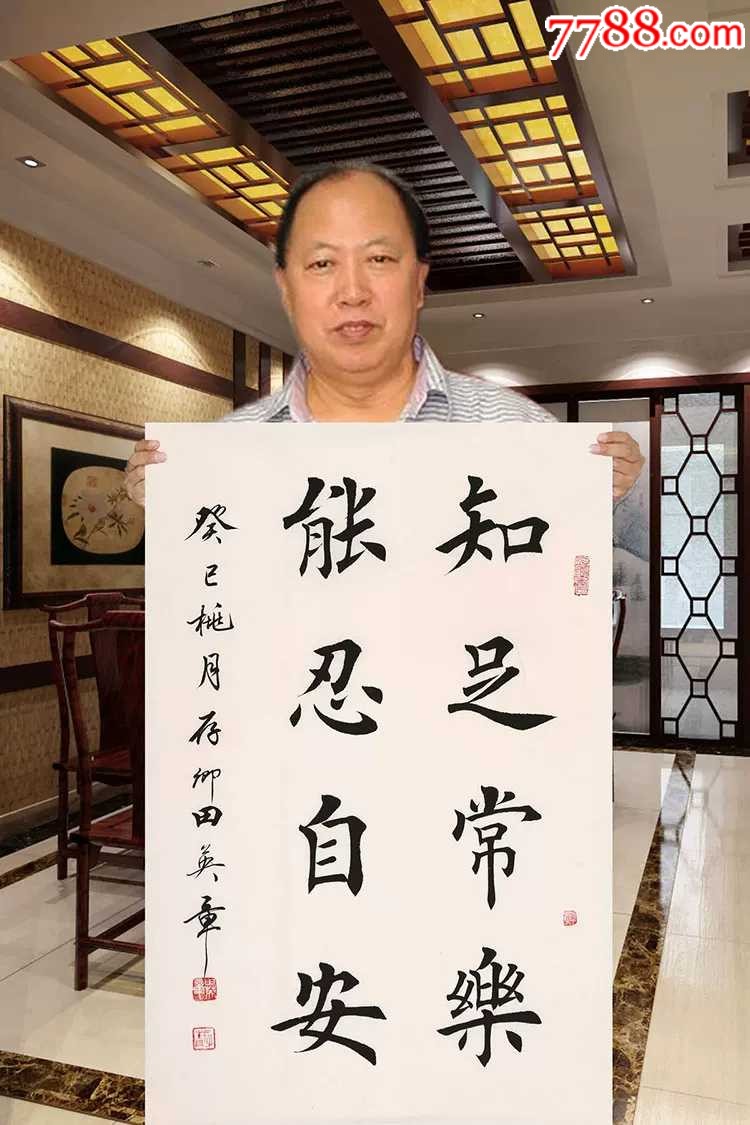 7788.com
知足常樂
能忍自安
癸巳桃月存卿田英章